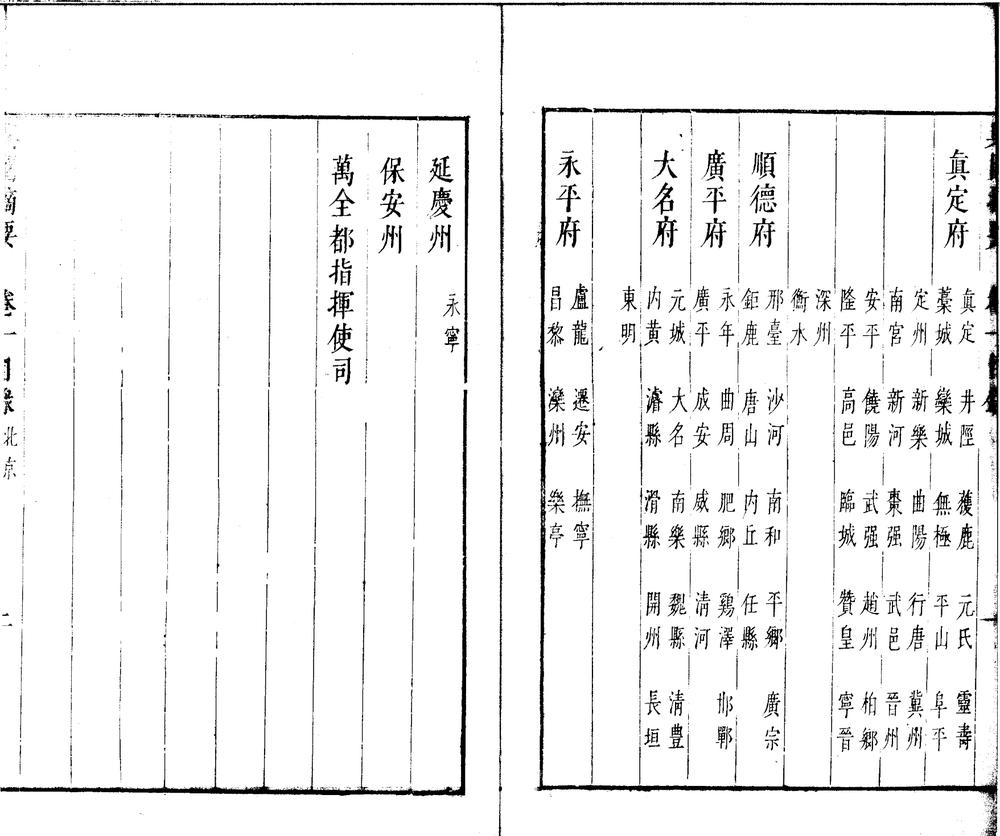 眞定府
眞定 井陘 獲鹿 元氏 靈壽
藁城 欒城 無極 平山 阜平
定州 新樂 曲陽 行唐 冀州
南宮 新河 棗强 武邑 晉州
安平 饒陽 武强 趙州 柏鄉
隆平 高邑 臨城 贊皇 寧晉
深州
衡水
順德府
邢臺 沙河 南和 平鄉 廣宗
鉅鹿 唐山 内丘 任縣
廣平府
永年 曲周 肥鄉 鷄澤 邯鄲
廣平 成安 威縣 清河
大名府
元城 大名 南樂 魏縣 清豐
内黃 濬縣 滑縣 開州 長垣
東明
永平府
盧龍 遷安 撫寧
昌黎 灤州 樂亭
延慶州 永寧
保安州
萬全都指揮使司
摘要 卷一 目錄 北京 二